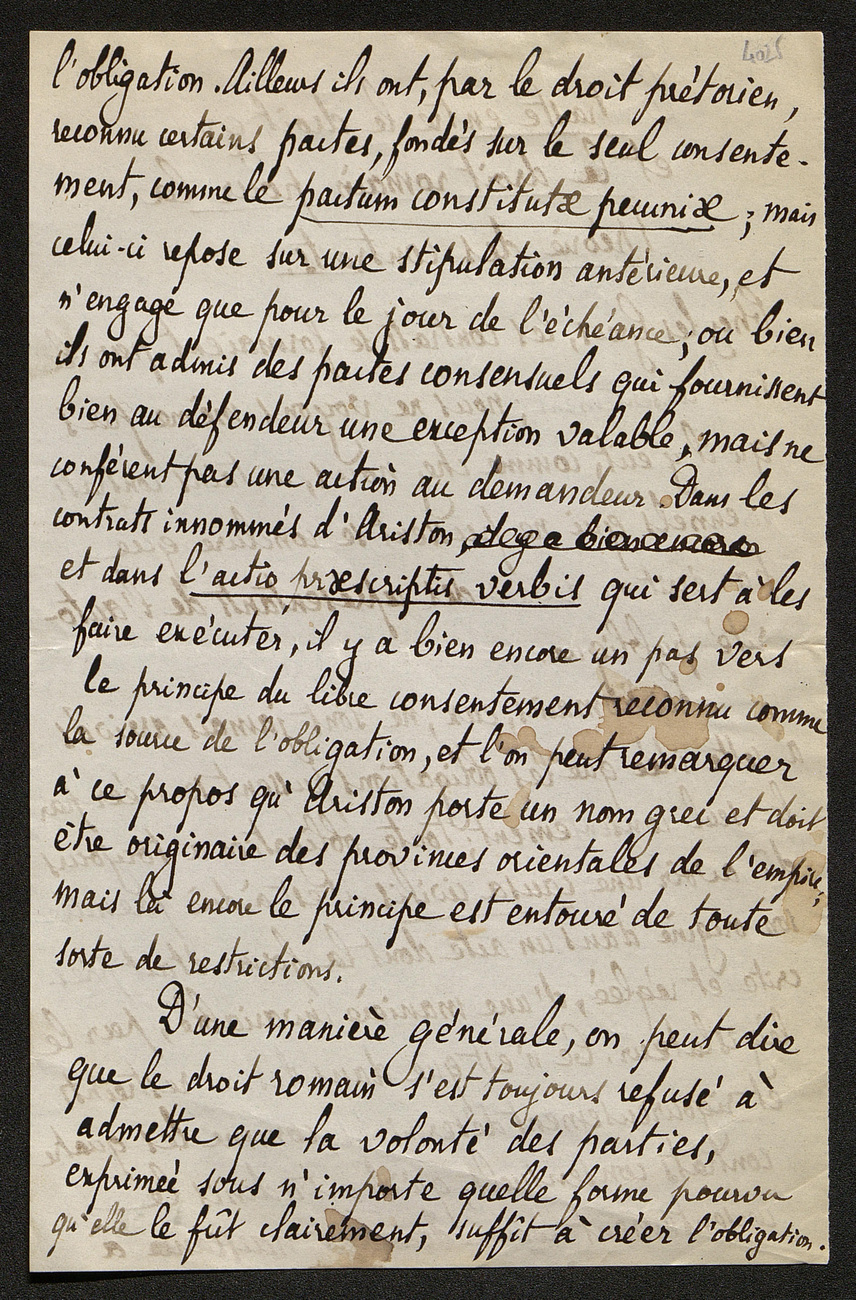 l'obligation. Ailleurs ils ont, par le droit prétorien,
reconnu certains pactes, fondés sur le seul consente-
ment, comme le pactum constitutæ pecuniæ ; mais
celui-ci repose sur une stipulation antérieure, et
n'engage que pour le jour de l'échéance ; ou bien
ils ont admis des pactes consensuels qui fournissent
bien au défendeur une exception valable, mais ne
confèrent pas une action au demandeur. Dans les
contrats innommés d'Ariston, il y a bien encore
et dans l'actio præscriptis verbis qui sert à les
faire exécuter, il y a bien encore un pas vers
le principe du libre consentement reconnu comme
la source de l'obligation, et l'on peut remarquer
à ce propos qu'Ariston porte un nom grec et doit
être originaire des provinces orientales de l'empire ;
mais là encore le principe est entouré de toute
sorte de restrictions.
D'une manière générale, on peut dire
que le droit romain s'est toujours refusé à
admettre que la volonté des parties,
exprimée sous n'importe quelle forme pourvu
qu'elle le fût clairement, suffît à créer l'obligation.